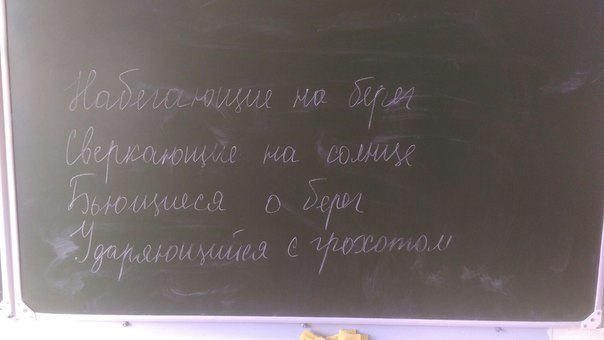 Набегающие на берег
Сверкающие на солнце
Бьющиеся о берег
Ударяющийся с грохотом